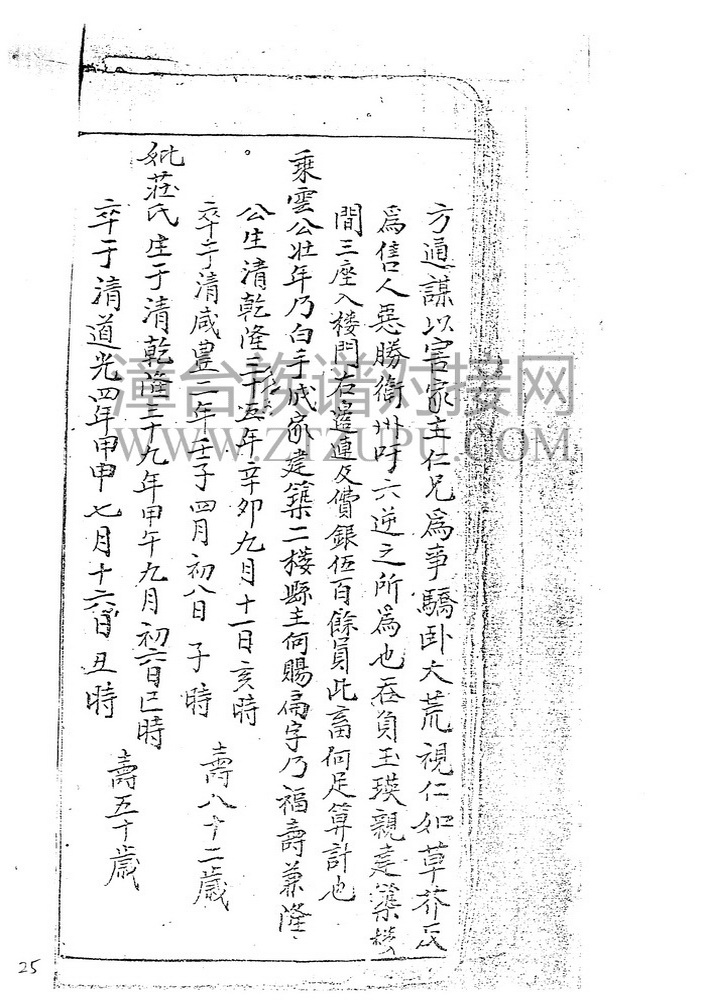 方通謀以害家主仁兄為事驕卧大荒視仁如草芥反
為售人惡勝衛州吁六逆之所為也吞負玉瑛親建築樓
間三座入楼門右邊連及費銀伍百餘員此畜何足算計也
乘雲公壯年乃白手成家建築二楼縣主何賜扁字乃福壽兼隆
公生清乾隆三十五年辛卯九月十一日亥時
卒于清咸豊二年壬子四月初八日子時 壽八十二歲
妣莊氏生于清乾隆三十九年甲午九月初六日巳時
卒于清道光四年甲申七月十六日丑時 壽五十歲
漳台族谱对接网
WWW.ZTZUPU.COM
25